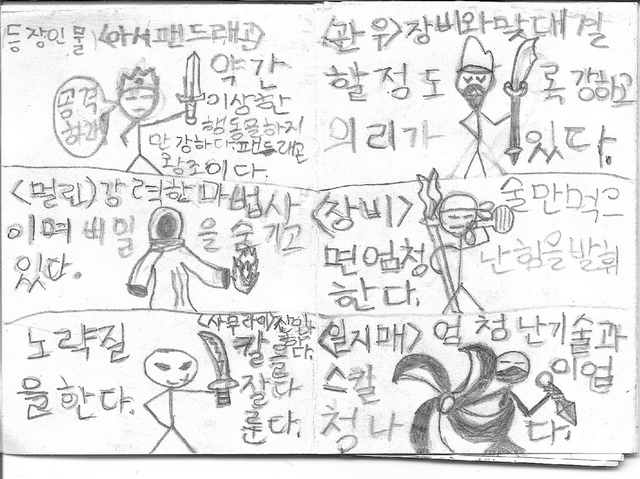 등장인물 <아서팬드래곤>
공격
하라
약간
이상한
행동을하지
만 강하다. 팬드래곤
왕조이다.
<관우>장비와맞대결
할정도록강하고
의리가있다.
<멀린>강력한마법사
이며비밀을숨기고
있다.
<장비>술만먹으
면엄청난힘을발휘
한다.
노략질
을한다.
<사무라이>
칼을
잘다
룬다.
<일지매>엄청난기술과
스킬이엄
청나다.